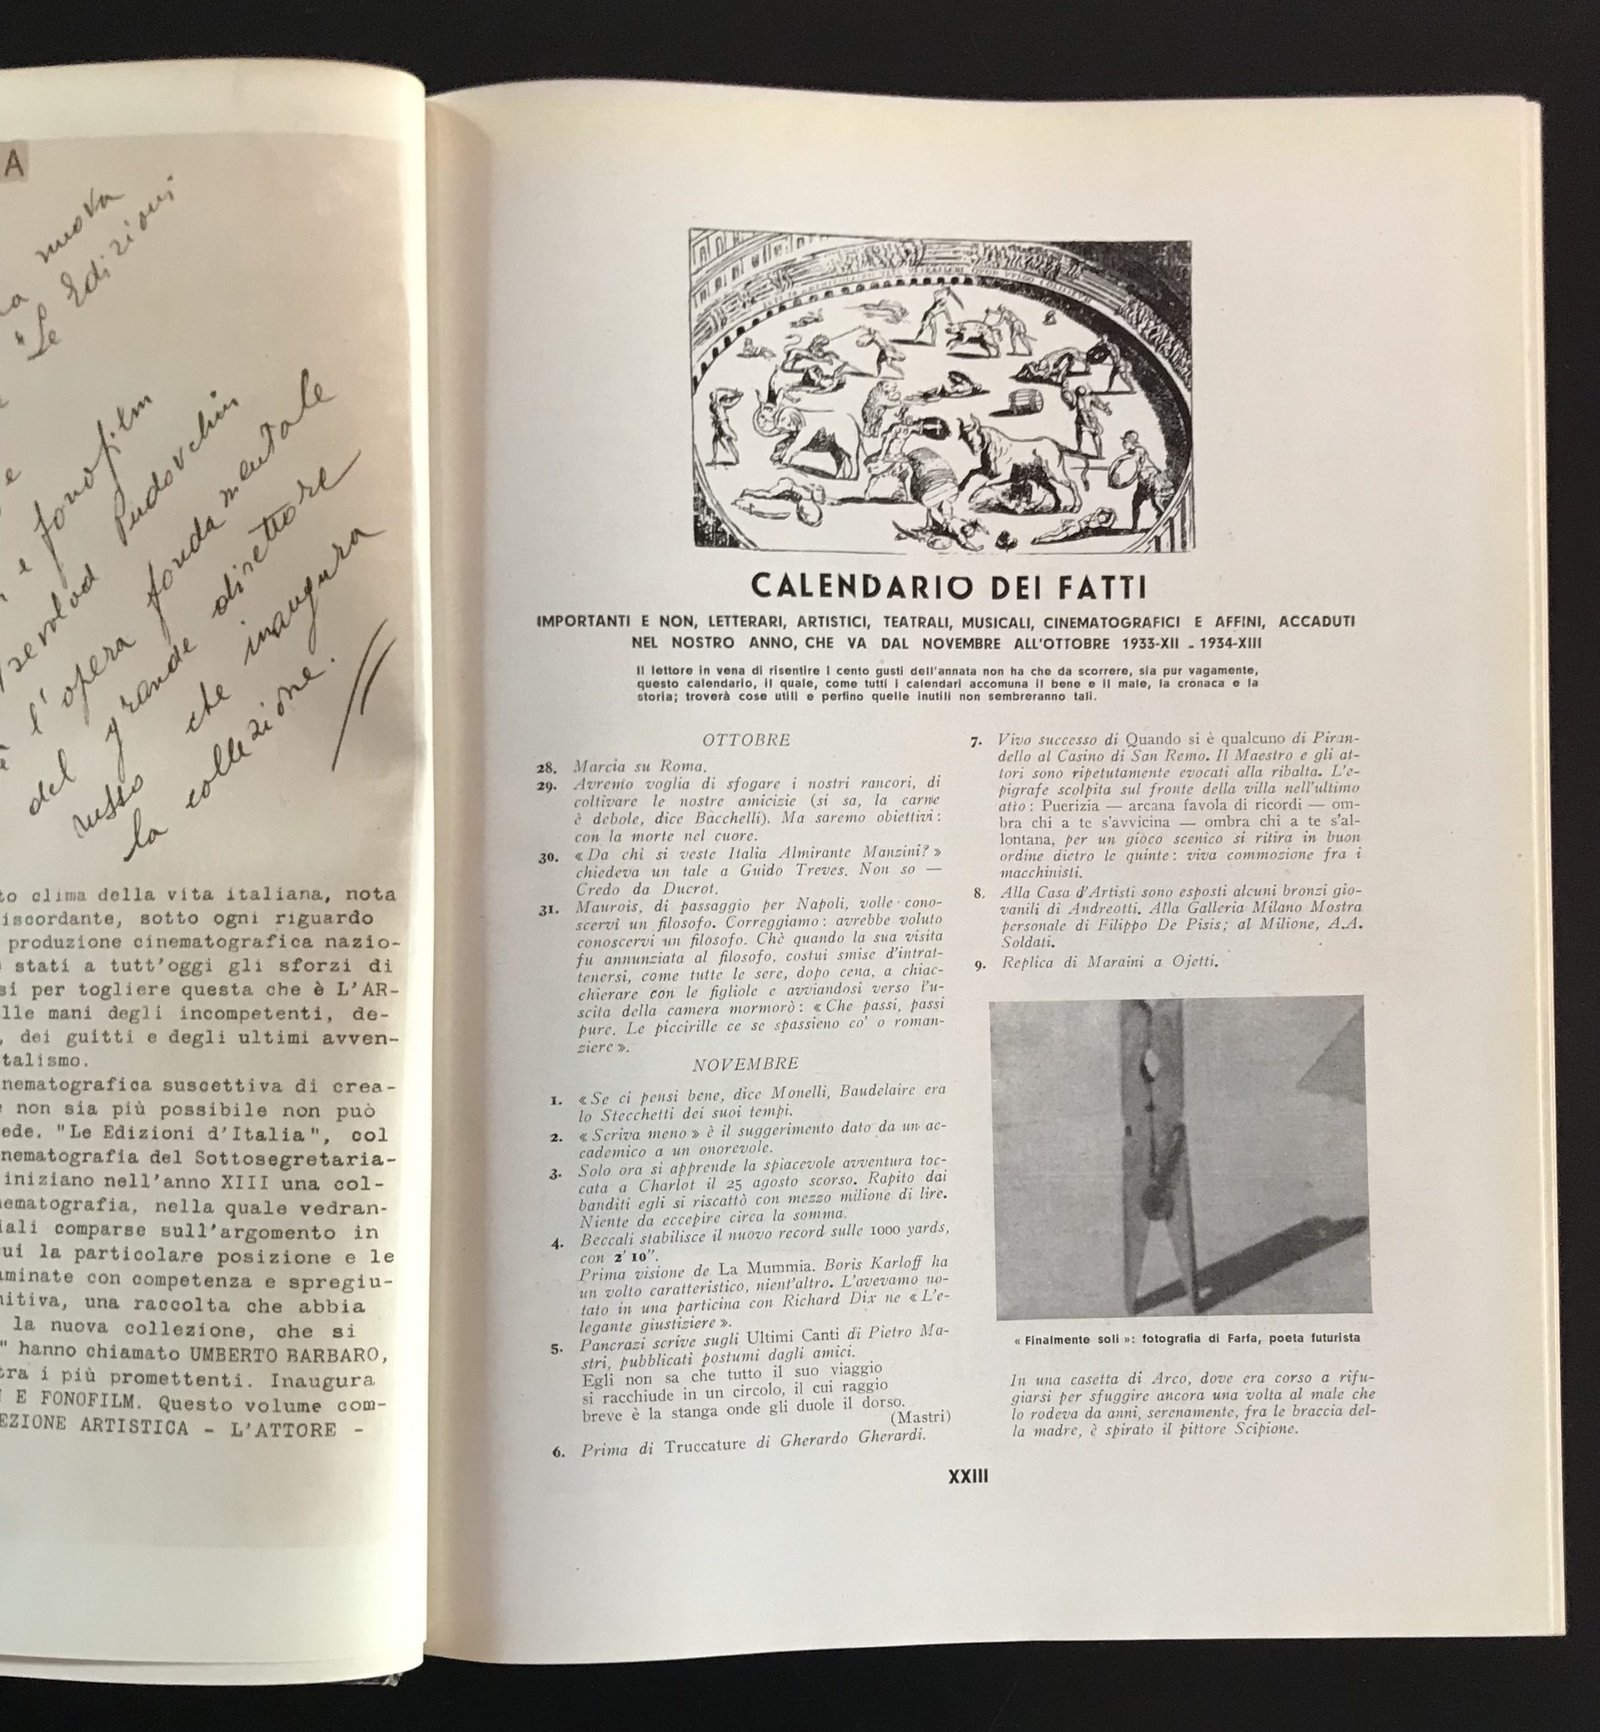 A
nuova
"Le Edizioni
e fonofilm
Pudovchin
l'opera fondamentale
del grande direttore
russo che inaugura
la collezione.
to clima della vita italiana, nota
iscordante, sotto ogni riguardo
produzione cinematografica nazio-
stati a tutt'oggi gli sforzi di
si per togliere questa che è L'AR-
lle mani degli incompetenti, de-
, dei guitti e degli ultimi avven-
talismo.
nematografica suscettiva di crea-
non sia più possibile non può
ede. "Le Edizioni d'Italia", col
nematografia del Sottosegretaria-
iniziano nell'anno XIII una col-
nematografia, nella quale vedran-
iali comparse sull'argomento in
ui la particolare posizione e le
minate con competenza e spregiu-
nitiva, una raccolta che abbia
la nuova collezione, che si
" hanno chiamato UMBERTO BARBARO,
tra i più promettenti. Inaugura
E FONOFILM. Questo volume com-
EZIONE ARTISTICA - L'ATTORE -
CALENDARIO DEI FATTI
IMPORTANTI E NON, LETTERARI, ARTISTICI, TEATRALI, MUSICALI, CINEMATOGRAFICI E AFFINI, ACCADUTI
NEL NOSTRO ANNO, CHE VA DAL NOVEMBRE ALL'OTTOBRE 1933-XII - 1934-XIII
Il lettore in vena di risentire i cento gusti dell'annata non ha che da scorrere, sia pur vagamente,
questo calendario, il quale, come tutti i calendari accomuna il bene e il male, la cronaca e la
storia; troverà cose utili e perfino quelle inutili non sembreranno tali.
OTTOBRE
28. Marcia su Roma.
29. Avremo voglia di sfogare i nostri rancori, di
coltivare le nostre amicizie (si sa, la carne
è debole, dice Bacchelli). Ma saremo obiettivi:
con la morte nel cuore.
30. « Da chi si veste Italia Almirante Manzini? »
chiedeva un tale a Guido Treves. Non so —
Credo da Ducrot.
31. Maurois, di passaggio per Napoli, volle cono-
scervi un filosofo. Correggiamo: avrebbe voluto
conoscervi un filosofo. Chè quando la sua visita
fu annunziata al filosofo, costui smise d'intrat-
tenersi, come tutte le sere, dopo cena, a chiac-
chierare con le figliole e avviandosi verso l'u-
scita della camera mormorò: « Che passi, passi
pure. Le piccirille ce se spassieno co' o roman-
ziere ».
NOVEMBRE
1. « Se ci pensi bene, dice Monelli, Baudelaire era
lo Stecchetti dei suoi tempi.
2. « Scriva meno » è il suggerimento dato da un ac-
cademico a un onorevole.
3. Solo ora si apprende la spiacevole avventura toc-
cata a Charlot il 25 agosto scorso. Rapito dai
banditi egli si riscattò con mezzo milione di lire.
Niente da eccepire circa la somma.
4. Beccali stabilisce il nuovo record sulle 1000 yards,
con 2' 10".
Prima visione de La Mummia. Boris Karloff ha
un volto caratteristico, nient'altro. L'avevamo no-
tato in una particina con Richard Dix ne « L'e-
legante giustiziere ».
5. Pancrazi scrive sugli Ultimi Canti di Pietro Ma-
stri, pubblicati postumi dagli amici.
Egli non sa che tutto il suo viaggio
si racchiude in un circolo, il cui raggio
breve è la stanga onde gli duole il dorso.
(Mastri)
6. Prima di Truccature di Gherardo Gherardi.
7. Vivo successo di Quando si è qualcuno di Piran-
dello al Casino di San Remo. Il Maestro e gli at-
tori sono ripetutamente evocati alla ribalta. L'e-
pigrafe scolpita sul fronte della villa nell'ultimo
atto: Puerizia — arcana favola di ricordi — om-
bra chi a te s'avvicina — ombra chi a te s'al-
lontana, per un gioco scenico si ritira in buon
ordine dietro le quinte: viva commozione fra i
macchinisti.
8. Alla Casa d'Artisti sono esposti alcuni bronzi gio-
vanili di Andreotti. Alla Galleria Milano Mostra
personale di Filippo De Pisis; al Milione, A.A.
Soldati.
9. Replica di Maraini a Ojetti.
« Finalmente soli »: fotografia di Farfa, poeta futurista
In una casetta di Arco, dove era corso a rifu-
giarsi per sfuggire ancora una volta al male che
lo rodeva da anni, serenamente, fra le braccia del-
la madre, è spirato il pittore Scipione.
XXIII